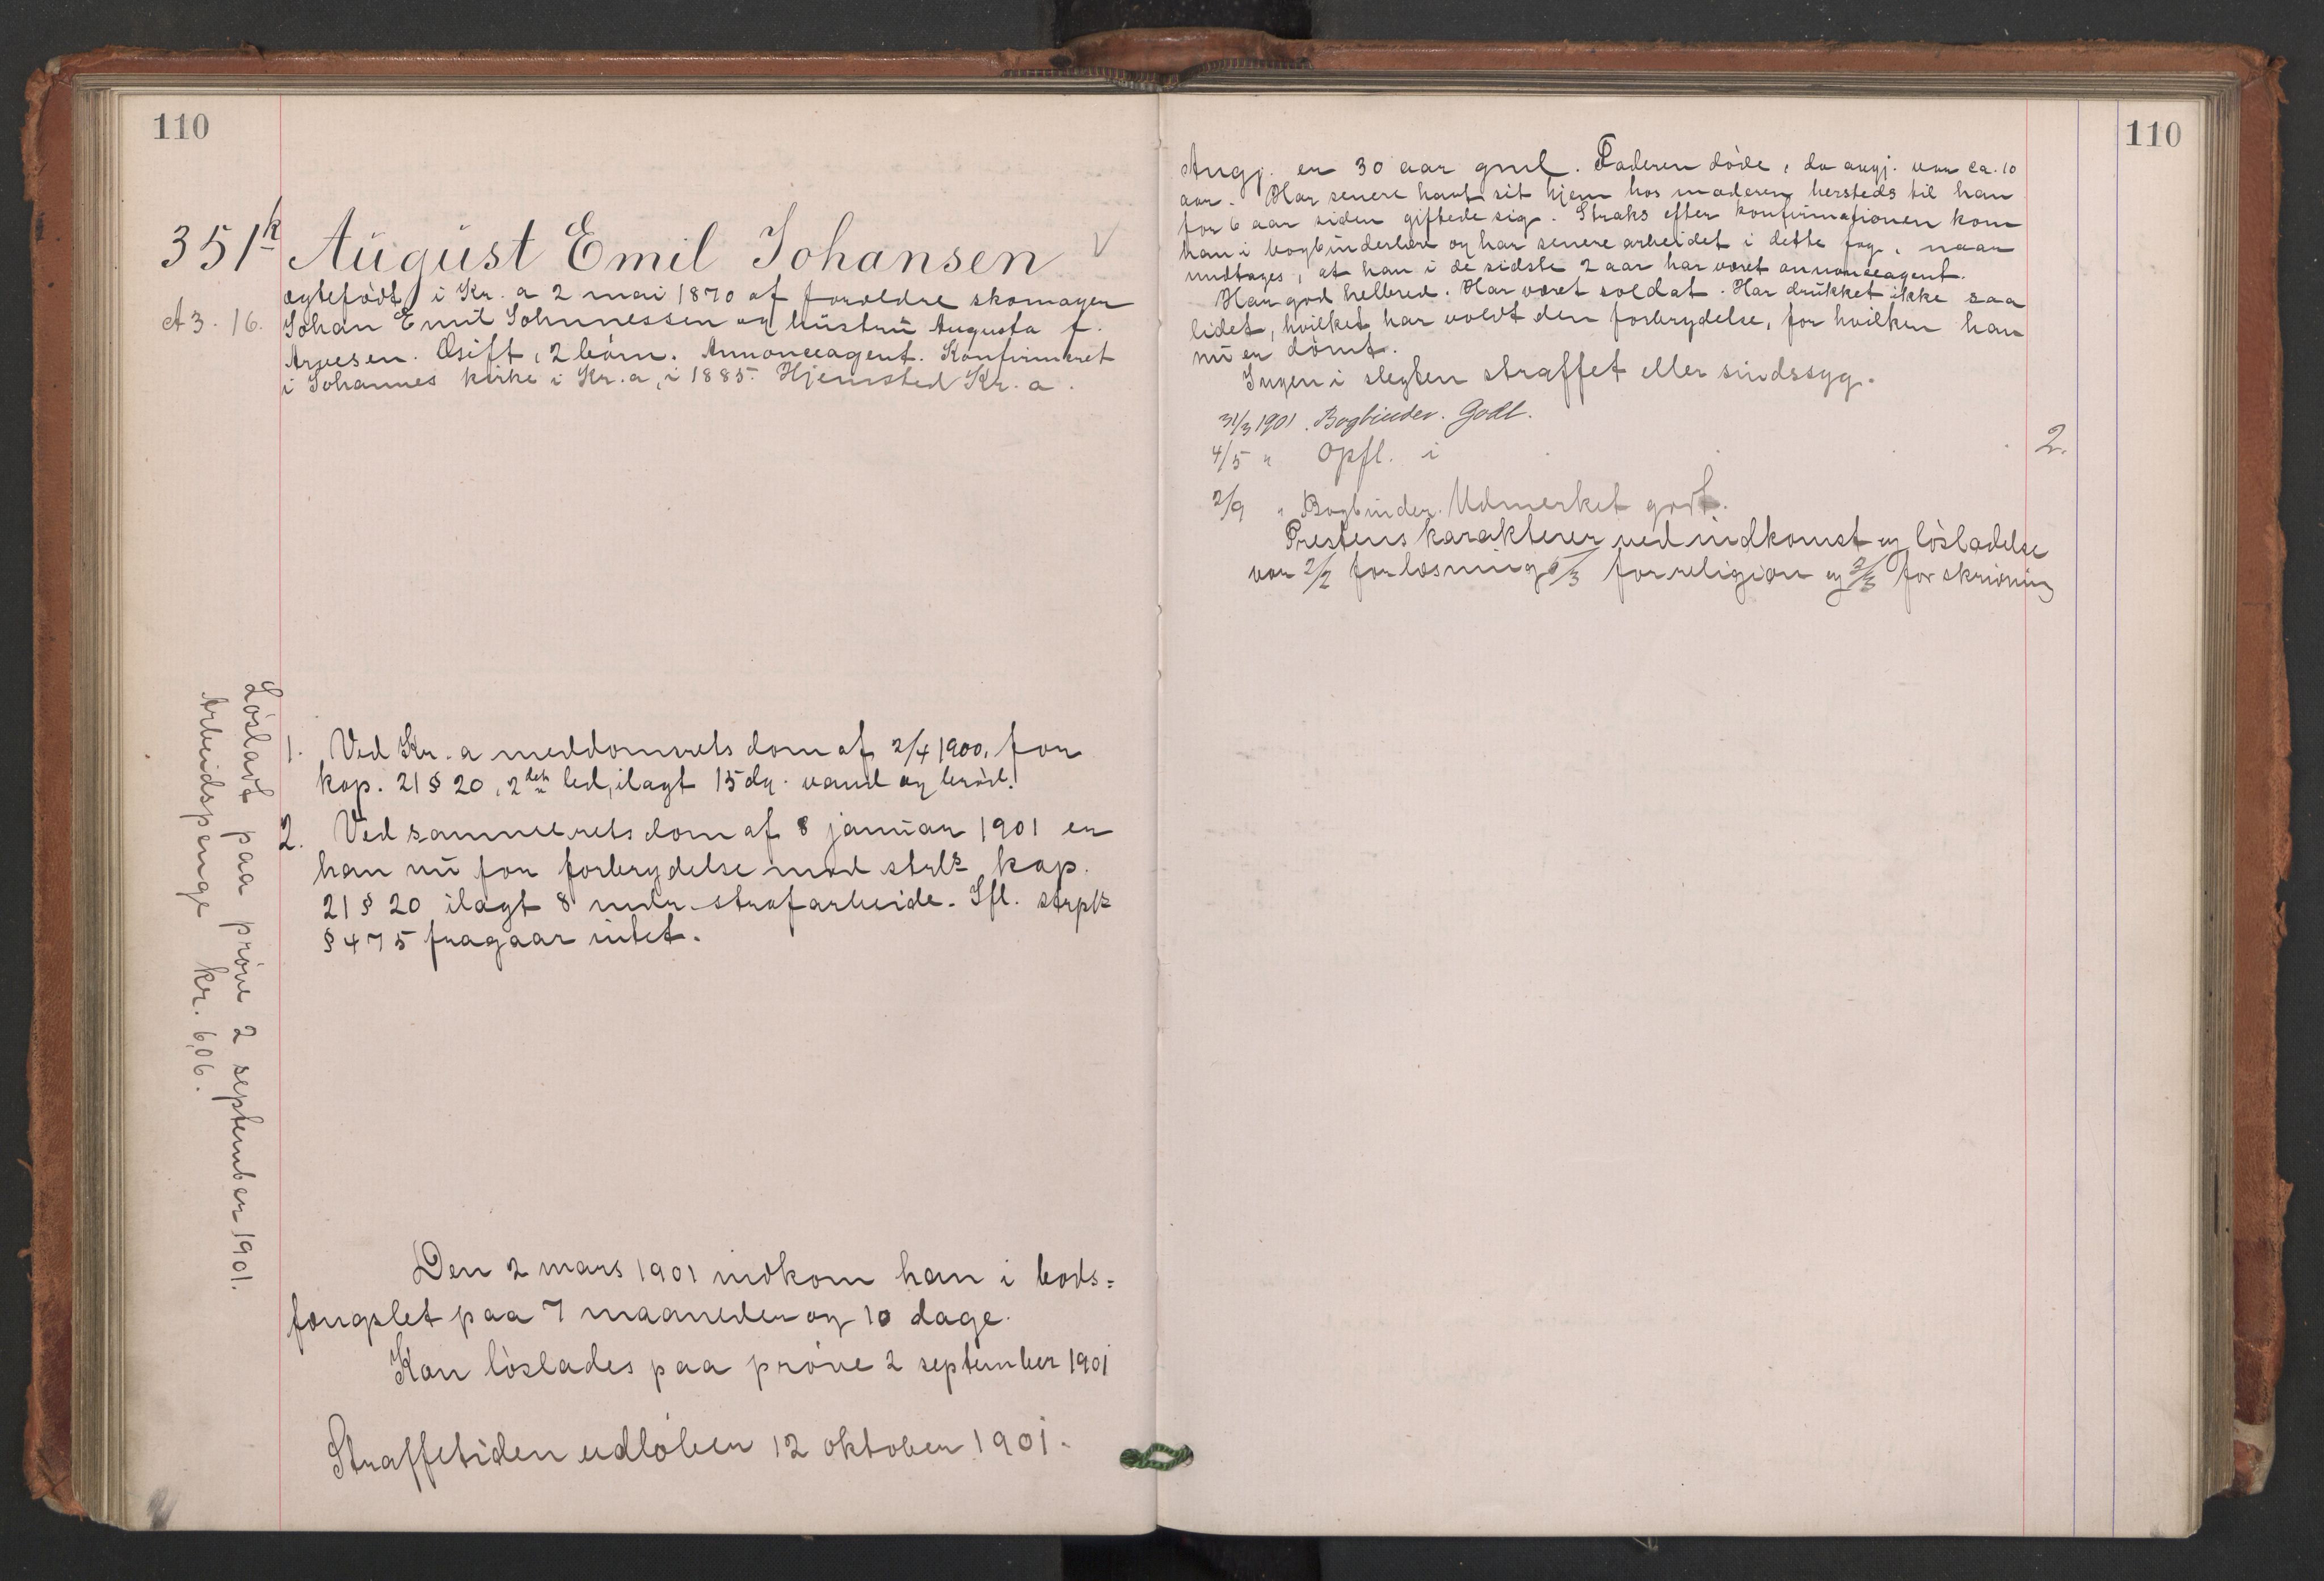 110
351k August Emil Johansen
A 3. 16.
ægtefødt, i Kr.a 2 mai 1870 af forældre skomager
Johan Emil Johannessen og hustru Augusta f.
Arvesen. Gift, 2 børn. Annonceagent. Konfirmeret
i Johannes kirke i Kr.a, i 1885. Hjemsted Kr.a.
1. Ved Kr.a meddomsrets dom af 2/4 1900, for
kap. 21 § 20, 2det led, ilagt 15 dg. vand og brød.
2. Ved samme rets dom af 8 januar 1901 er
han nu for forbrydelse mod strl. kap.
21 § 20 ilagt 8 mdr. strafarbeide. Ifl. strpl.
§ 475 fragaar intet.
Den 2 mars 1901 indkom han i bods=
fængslet paa 7 maaneder og 10 dage.
Kan løslades paa prøve 2 september 1901
Straffetiden udløber 12 oktober 1901.
Løsladt paa prøve 2 september 1901.
Arbeidspenge kr. 6,06.
110
Angj. er 30 aar gml. Faderen døde, da angj. var ca. 10
aar. Har senere havt sit hjem hos moderen hersteds til han
for 6 aar siden giftede sig. Straks efter konfirmationen kom
han i bogbinderlære og har senere arbeidet i dette fag, naar
undtages, at han i de sidste 2 aar har været annonceagent.
Har god helbred. Har været soldat. Har drukket ikke saa
lidet, hvilket har voldt den forbrydelse, for hvilken han
nu er dømt.
Ingen i slegten straffet eller sindssyg.
31/3 1901. Bogbinder. Godt.
4/5 " Opfl. i 2.
2/9 " Bogbinder. Udmerket godt.
Prestens karakterer ved indkomst og løsladelse
var 2/2 for læsning /3 for religion og 2/3 for skrivning